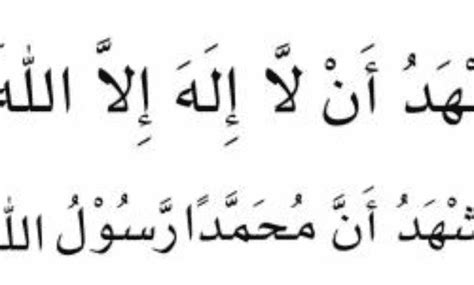 ـْهَدُ أَنْ لَّا إِلَهَ إِلاَّ اللّٰه
شْهَدُ أَنَّ مُحَمَّدًا رَّسُوْلُ اللّٰه